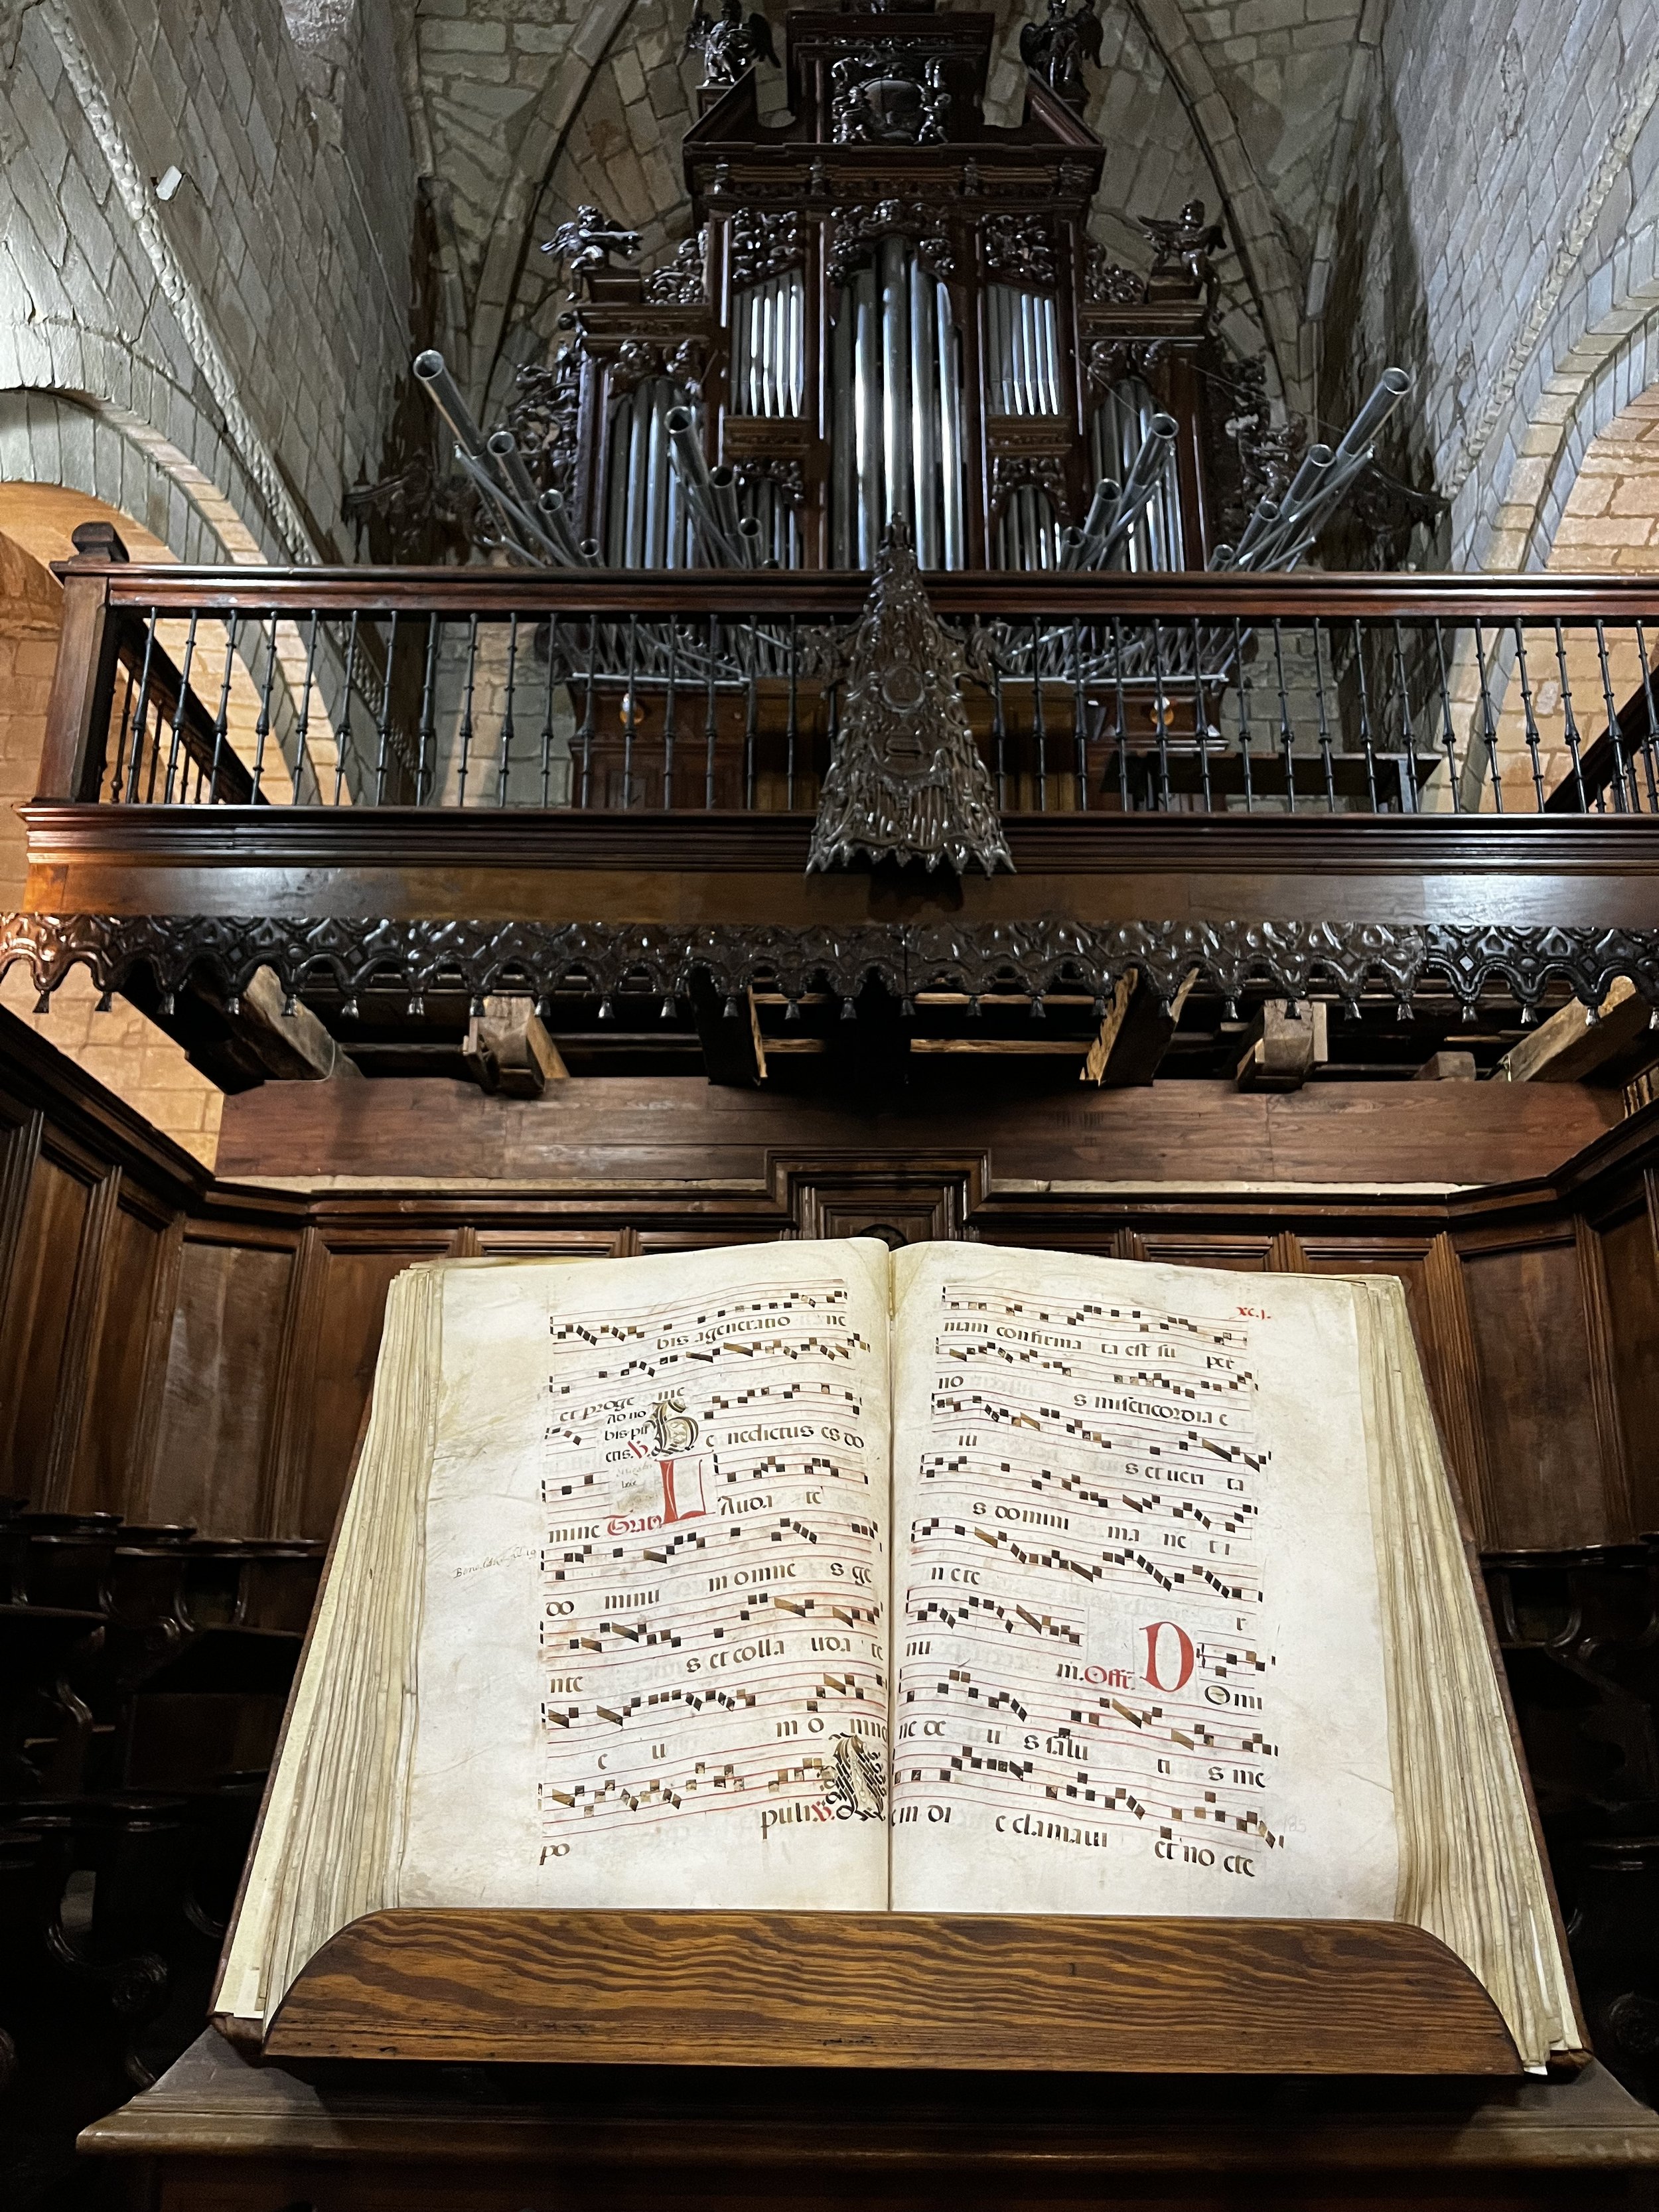 bis ageneratio ne
et proge nie
Ad no
bis·pſr
ctis.℣. B e nedictus es do
mine Trac̄. L Auda te
do minū m omne s ge
nte s et colla uda te
e u m o mne
po puli℣. Q
xc.j.
niam confirma ta est su per
no s misericordia e
iu s et ueri ta
s domini ma ne t i
n ete r
nu m. Offr̄. D Omi
ne de u s salu ti s me
e in di e clamaui et no cte